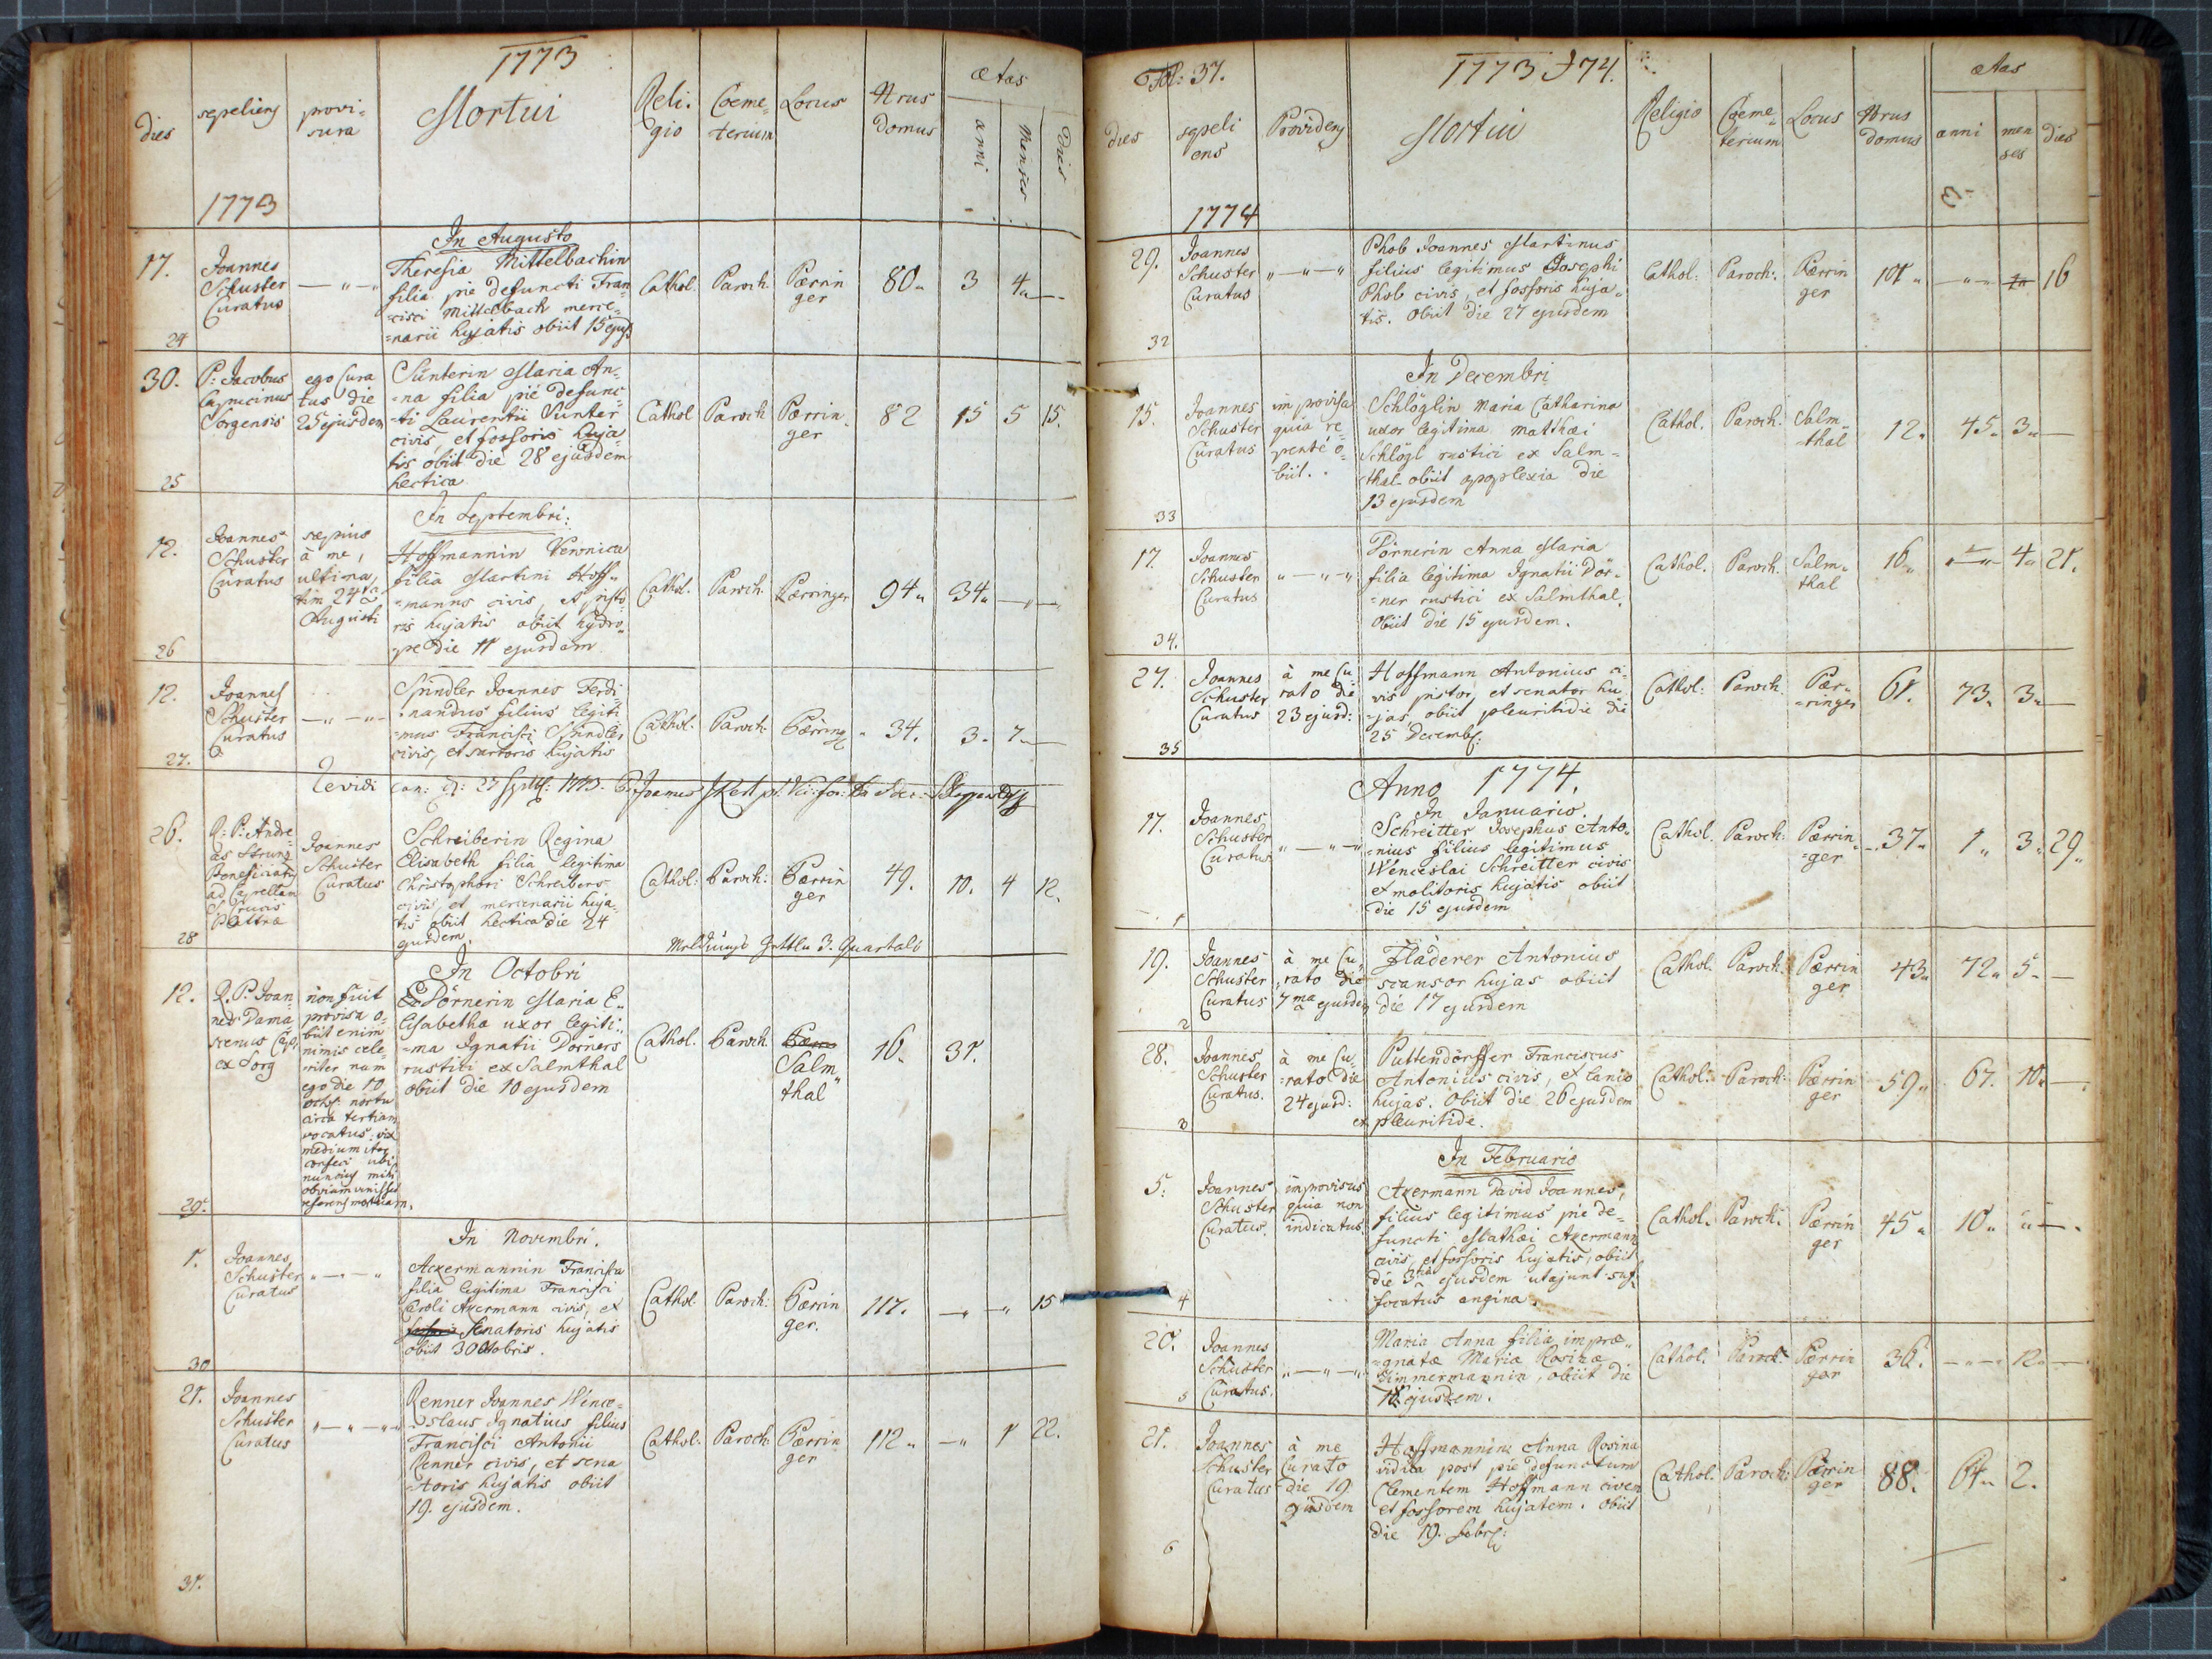 1773
dies
sepeliens
provi-
sura
Mortui
Reli-
gio
Coeme-
terium
Locus
Nrus
Domus
ætas
anni
Menses
Dies
1773
In Augusto
17.
Joannes
Schuster
Curatus
24
Theresia Mittelbachin
filia pie defuncti Fran-
=cisci Mittelbach merce-
=narii hujatis obiit 15 ejus
Cathol. Paroch. Pærrin
ger
80 3 4
30.
P: Jacobus
Capucinus
Sorgensis
25
ego Cura
tus die
25 ejusdem
Sünterin Maria An-
=na filia pie defunc-
=ti Laurentii Sunter
civis, et fossoris huja-
tis obiit die 28 ejusdem
hectica
Cathol Paroch Pærrin
ger
82 15 5 15.
In Septembri:
12.
Joannes
Schuster
Curatus
26
sepius
à me,
ultima,
tim 24ta
Augusti
Hoffmannin Veronica
filia Martini Hoff-
=manns civis, et pisto-
ris hujatis obiit hydro-
pe die 11 ejusdam
Cathol. Paroch. Pærringer
94 34
12.
Joannes
Schuster
Curatus
27.
Spindler Joannes Ferdi
nandus filius legiti
=mus Francisci Spindler
civis, et sartoris hujatis
Cathol. Paroch. Pærring
34. 3. 7
Revidi
27 1773.
26.
R: P: Andre-
as Strunz
Beneficiatus
ad Capellam
S. Crucis
28
Joannes
Schuster
Curatus
Schreiberin Regina
Elisabeth filia legitima
Christophori Schreibers
civis, et mercenarii huja-
tis obiit hectica die 24
ejusdem
Cathol: Paroch: Pærrin
ger
49. 10. 4 12.
3. Quartals
In Octobri
12.
R. P: Joan-
nes Dama
scenus Cap.
ex Sorg
29.
non fuit
provisa o-
biit enim
nimis cele-
riter nam
ego die 10
octb: noctu
circa tertiam
vocatus vix
medium iter
confeci ubi
nuncius mihi
obviam venisset
referens mortuam.
Dörnerin Maria E-
lisabetha uxor legiti-
=ma Ignatii Dörners
rustici ex Salmthal
obiit die 10 ejusdem
Cathol. Paroch.
Salm
thal
16. 31.
In Novembri.
1.
Joannes
Schuster
Curatus
30
Ackermannin Francisca
filia legitima Francisci
Caroli Akermann civis, et
Senatoris hujatis
obiit 30 Octobris.
Cathol. Paroch: Pærrin
ger.
117. 15
21.
Joannes
Schuster
Curatus
31.
Renner Joannes Wence-
slaus Ignatius filius
Francisci Antonii
Renner civis, et sena
toris hujatis obiit
19. ejusdem.
Cathol: Paroch: Pærrin
ger
112 1 22.
Fol: 37.
1773 & 74.
dies
sepeli
ens
Providens
Mortui
Religio
Coeme-
terium
Locus
Nrus
domus
ætas
anni
men
ses
dies
1774
29.
Joannes
Schuster
Curatus
32
Phob Joannes Martinus
filius legitimus Josephi
Phob civis, et fossoris huja-
tis. Obiit die 27 ejusdem
Cathol: Paroch: Pærrin
ger
101 16
In Decembri
15.
Joannes
Schuster
Curatus
33
improvisa
quia re-
pente o-
biit.
Schlöglin Maria Catharina
uxor legitima Matthæi
Schlögl rustici ex Salm-
thal obiit apoplexia die
13 ejusdem
Cathol. Paroch. Salm-
thal
12. 45. 3
17.
Joannes
Schuster
Curatus
34.
Dörnerin Anna Maria
filia legitima Ignatii Dör-
=ner rustici ex Salmthal
Obiit die 15 ejusdem.
Cathol. Paroch. Salm-
thal
16 4 21.
27.
Joannes
Schuster
Curatus
35
à me Cu
rato die
23 ejusd:
Hoffmann Antonius ci-
vis pistor, et senator hu
=jas obiit pleuritidie die
25 Decemb:
Cathol: Paroch. Pær-
=ringer
61. 73. 3
Anno 1774.
In Januario.
17.
Joannes
Schuster
Curatus
1
Schreitter Josephus Anto-
=nius filius legitimus
Wenceslai Schreitter civis
et molitoris hujatis obiit
die 15 ejusdem
Cathol. Paroch: Pærrin-
=ger
37 1 3 29
19.
Joannes
Schuster
Curatus
2
à me Cu
rato die
7ma ejusdem
Fladerer Antonius
scansor hujas obiit
die 17 ejusdem
Cathol. Paroch: Pærrin
ger
43 72 5
28.
Joannes
Schuster
Curatus.
3
à me Cu
=rato die
24 ejusd:
Puttendörffer Franciscus
Antonius civis, et lanio
hujas. Obiit die 26 ejusdem
ex pleuritide.
Cathol: Paroch: Pærrin
ger
59 67. 10
In Februario
5:
Joannes
Schuster
Curatus.
4
improvisus
quia non
indicatus.
Akermann David Joannes,
filius legitimus pie de-
functi Mathæi Akermann
civis, et fossoris hujatis, obiit
die 3tia ejusdem utajunt suf-
focatus angina.
Cathol. Paroch. Pærrin
ger
45 10
20.
Joannes
Schuster
Curatus.
5
Maria Anna filia impræ-
=gnatæ Maria Rosinæ
Zimmermannin, obiit die
18 ejusdem.
Cathol. Paroch. Pærrin
ger
36. 12
21.
Joannes
Schuster
Curatus
6
à me
Curato
die 19
ejusdem
Hoffmannin Anna Rosina
vidua post pie defunctum
Clementem Hoffmann civem
et fossorem hujatem. obiit
die 19. febr:
Cathol. Paroch: Pærrin
ger
88. 64 2.